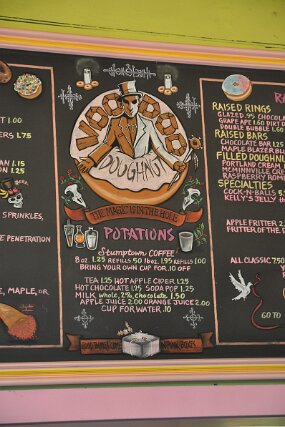 1.00
ERS 1.25
AN 1.15
1.25
SPRINKLES,
E PENETRATION
E, MAPLE, OR
VOODOO
DOUGHNUT
THE MAGIC IS IN THE HOLE
POTATIONS
Stumptown COFFEE
8 oz. 1.25 REFILLS .50 16oz. 1.95 REFILLS 1.00
BRING YOUR OWN CUP FOR .10 OFF
TEA 1.25 HOT APPLE CIDER 1.25
HOT CHOCOLATE 1.25 SODA POP 1.25
MILK whole, 2%, chocolate 1.50
APPLE JUICE 2.00 ORANGE JUICE 2.00
CUP FOR WATER .10
GOOD THINGS COME
IN PINK BOXES
RA
RAISED RINGS
GLAZED .95 CHOCOLA
GRAPE APE 1.60 DIRT
DOUBLE BUBBLE 1.60
RAISED BARS
CHOCOLATE BAR 1.25
MAPLE BLAZER BLU
FILLED DOUGHNU
PORTLAND CREAM
MCMINNVILLE CRE
RASPBERRY ROME
SPECIALTIES
COCK-N-BALLS 5.
KELLY'S JELLY
APPLE FRITTER 2.
FRITTER OF THE D
ALL CLASSIC 7.50
GO TO